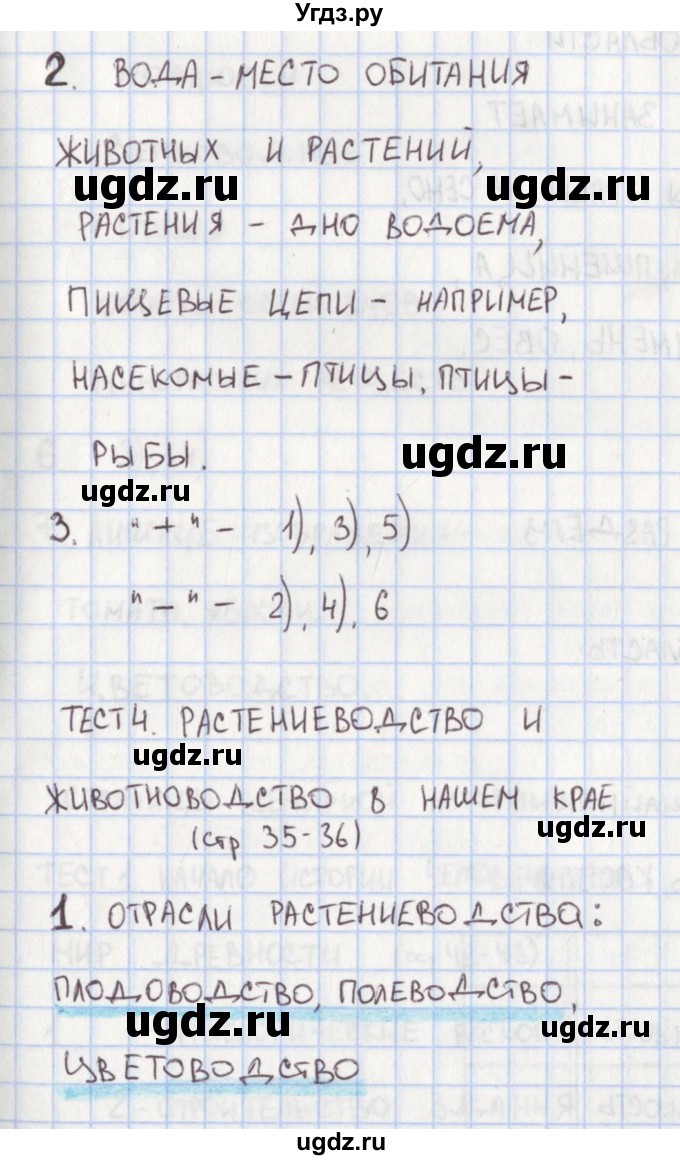 Угдз.ру
2. ВОДА - МЕСТО ОБИТАНИЯ
ЖИВОТНЫХ И РАСТЕНИЙ,
ugdz.ru ugdz.ru
РАСТЕНИЯ - ДНО ВОДОЕМА,
ПИЩЕВЫЕ ЦЕПИ - НАПРИМЕР,
НАСЕКОМЫЕ - ПТИЦЫ, ПТИЦЫ -
РЫБЫ.
ugdz.ru
ugdz.ru
3. "+" - 1), 3), 5)
"-" - 2), 4), 6
ТЕСТ 4. РАСТЕНИЕВОДСТВО И
ugdz.ru
ЖИВОТНОВОДСТВО В НАШЕМ КРАЕ
ugdz.ru
(стр 35-36)
1. ОТРАСЛИ РАСТЕНИЕВОДСТВА:
ПЛОДОВОДСТВО, ПОЛЕВОДСТВО,
ugdz.ru
ЦВЕТОВОДСТВО
ugdz.ru